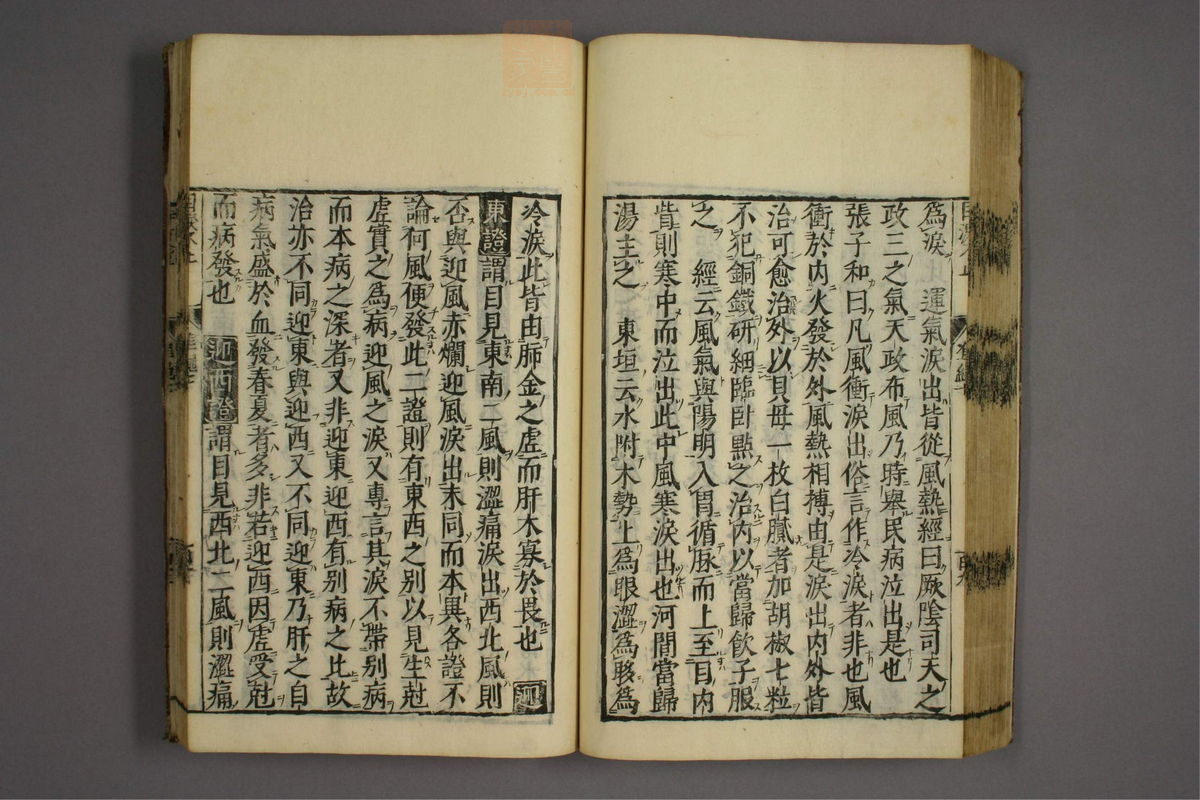 為淚　運氣淚出皆從風熱經曰厥陰司天之
政三之氣天政布風乃時舉民病泣出是也
張子和曰凡風衝淚出俗言作冷淚者非也風
衝於内火發於外風熱相搏由是淚出内外皆
治可愈治外以貝母一枚白膩者加胡椒七粒
不犯銅鐵研細臨卧點之治内以當歸飲子服
之　經云風氣與陽明入胃循脉而上至目内
眥則寒中而泣出此中風寒淚出也河間當歸
湯主之　東垣云水附木勢上為眼澀為眵為
冷淚此皆由肺金之虛而肝木寡於畏也　迎
東證謂目見東南二風則澀痛淚出西北風則
否與迎風赤爛迎風淚出末同而本異各證不
論何風便發此二證則有東西之別以見生尅
虛實之為病迎風之淚又專言其淚不帶別病
而本病之深者又非迎東迎西有別病之比故
治亦不同迎東與迎西又不同迎東乃肝之自
病氣盛於血發春夏者多非若迎西因虛受尅
而病發也　迎西證謂目見西北二風則澀痛